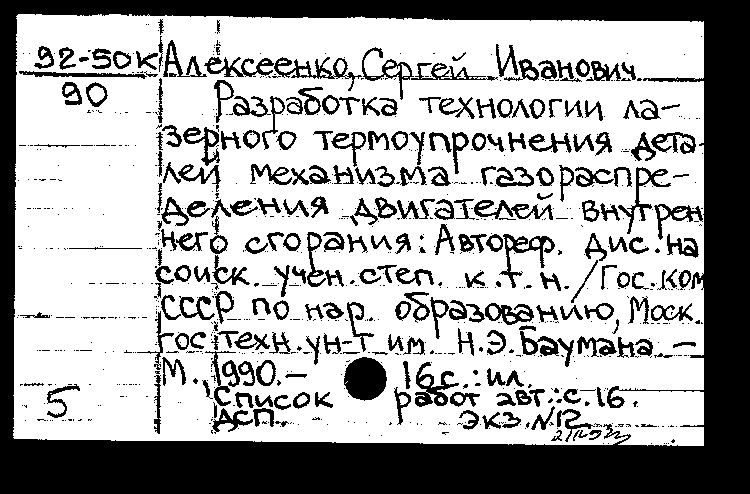 92-50к Алексеенко, Сергей Иванович
90 Разработка технологии ла-
зерного термоупрочнения дета-
лей механизма газораспре-
деления двигателей внутрен
него сгорания: Автореф. дис. на
соиск. учен. степ. к.т.н. / Гос. ком
СССР по нар. образованию, Моск.
гос техн. ун-т им. Н.Э. Баумана. -
М., 1990. - 16 с.: ил.
5 Список работ авт.: с. 16.
ДСП. Экз. №12